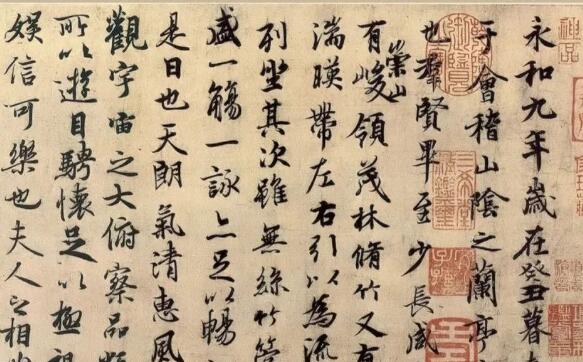 永和九年歲在癸丑暮
于會稽山陰之蘭亭
也羣賢畢至少長咸
有崇山峻領茂林脩竹又有
湍暎帶左右引以為流
列坐其次雖無絲竹管
盛一觴一詠亦足以暢
是日也天朗氣清惠風
觀宇宙之大俯察品類
所以遊目騁懷足以極視
娛信可樂也夫人之相與
神品